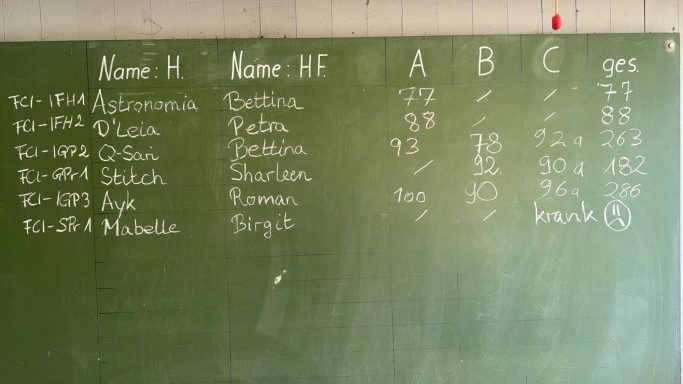 Name: H. Name: HF. A B C ges.
FCI-IFH1 Astronomia Bettina 77 / / 77
FCI-IFH2 D'Leia Petra 88 / / 88
FCI-IGP2 Q-Sari Bettina 93 78 92a 263
FCI-GPr1 Stitch Sharleen / 92 90a 182
FCI-IGP3 Ayk Roman 100 90 96a 286
FCI-SPr1 Mabelle Birgit / / krank